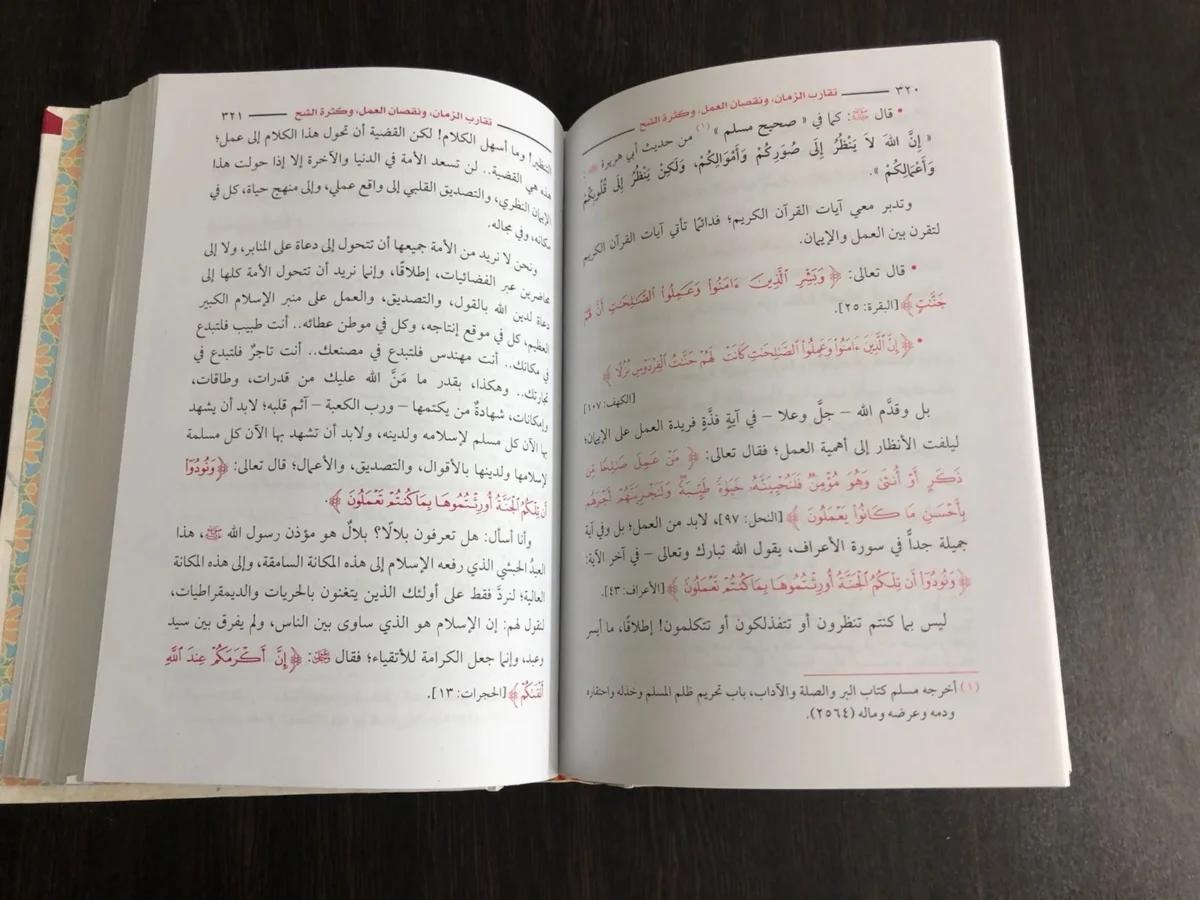 ٣٢٠ تقارب الزمان، ونقصان العمل، وكثرة الشح
• قال ﷺ: كما في « صحيح مسلم »(١) من حديث أبي هريرة ﷺ:
« إِنَّ اللهَ لَا يَنْظُرُ إِلَى صُوَرِكُمْ وَأَمْوَالِكُمْ، وَلَكِنْ يَنْظُرُ إِلَى قُلُوبِكُمْ
وَأَعْمَالِكُمْ ».
وتدبر معي آيات القرآن الكريم؛ فدائمًا تأتي آيات القرآن الكريم
لتقرن بين العمل والإيمان.
• قال تعالى: ﴿ وَبَشِّرِ ٱلَّذِينَ ءَامَنُوا۟ وَعَمِلُوا۟ ٱلصَّـٰلِحَـٰتِ أَنَّ لَهُمْ
جَنَّـٰتٍ ﴾ [البقرة: ٢٥].
• ﴿ إِنَّ ٱلَّذِينَ ءَامَنُوا۟ وَعَمِلُوا۟ ٱلصَّـٰلِحَـٰتِ كَانَتْ لَهُمْ جَنَّـٰتُ ٱلْفِرْدَوْسِ نُزُلًا ﴾
[الكهف: ١٠٧]
بل وقدَّم الله – جلَّ وعلا – في آيةٍ فذَّةٍ فريدة العمل على الإيمان؛
ليلفت الأنظار إلى أهمية العمل؛ فقال تعالى: ﴿ مَنْ عَمِلَ صَـٰلِحًا مِّن
ذَكَرٍ أَوْ أُنثَىٰ وَهُوَ مُؤْمِنٌ فَلَنُحْيِيَنَّهُۥ حَيَوٰةً طَيِّبَةً ۖ وَلَنَجْزِيَنَّهُمْ أَجْرَهُم
بِأَحْسَنِ مَا كَانُوا۟ يَعْمَلُونَ ﴾ [النحل: ٩٧]، لابد من العمل؛ بل وفي آية
جميلة جداً في سورة الأعراف، يقول الله تبارك وتعالى – في آخر الآية:
﴿ وَنُودُوٓا۟ أَن تِلْكُمُ ٱلْجَنَّةُ أُورِثْتُمُوهَا بِمَا كُنتُمْ تَعْمَلُونَ ﴾ [الأعراف: ٤٣].
ليس بما كنتم تنظرون أو تتفذلكون أو تتكلمون! إطلاقًا، ما أيسر
(١) أخرجه مسلم كتاب البر والصلة والآداب، باب تحريم ظلم المسلم وخذله واحتقاره
ودمه وعرضه وماله (٢٥٦٤).
تقارب الزمان، ونقصان العمل، وكثرة الشح ٣٢١
التنظير! وما أسهل الكلام! لكن القضية أن تحول هذا الكلام إلى عمل؛
هذه هي القضية.. لن تسعد الأمة في الدنيا والآخرة إلا إذا حولت هذا
الإيمان النظري، والتصديق القلبي إلى واقع عملي، وإلى منهج حياة، كل في
مكانه، وفي مجاله.
ونحن لا نريد من الأمة جميعها أن تتحول إلى دعاة على المنابر، ولا إلى
محاضرين عبر الفضائيات، إطلاقًا، وإنما نريد أن تتحول الأمة كلها إلى
دعاة لدين الله بالقول، والتصديق، والعمل على منبر الإسلام الكبير
العظيم، كل في موقع إنتاجه، وكل في موطن عطائه.. أنت طبيب فلتبدع
في مكانك.. أنت مهندس فلتبدع في مصنعك.. أنت تاجرٌ فلتبدع في
تجارتك.. وهكذا، بقدر ما مَنَّ الله عليك من قدرات، وطاقات،
وإمكانات، شهادةٌ من يكتمها – ورب الكعبة – آثم قلبه؛ لابد أن يشهد
بها الآن كل مسلم لإسلامه ولدينه، ولابد أن تشهد بها الآن كل مسلمة
لإسلامها ولدينها بالأقوال، والتصديق، والأعمال؛ قال تعالى: ﴿ وَنُودُوٓا۟
أَن تِلْكُمُ ٱلْجَنَّةُ أُورِثْتُمُوهَا بِمَا كُنتُمْ تَعْمَلُونَ ﴾.
وأنا أسأل: هل تعرفون بلالًا؟ بلالٌ هو مؤذن رسول الله ﷺ، هذا
العبدُ الحبشي الذي رفعه الإسلام إلى هذه المكانة السامقة، وإلى هذه المكانة
العالية؛ لنردَّ فقط على أولئك الذين يتغنون بالحريات والديمقراطيات،
لنقول لهم: إن الإسلام هو الذي ساوى بين الناس، ولم يفرق بين سيد
وعبد، وإنما جعل الكرامة للأتقياء؛ فقال ﷻ: ﴿ إِنَّ أَكْرَمَكُمْ عِندَ ٱللَّهِ
أَتْقَىٰكُمْ ﴾ [الحجرات: ١٣].